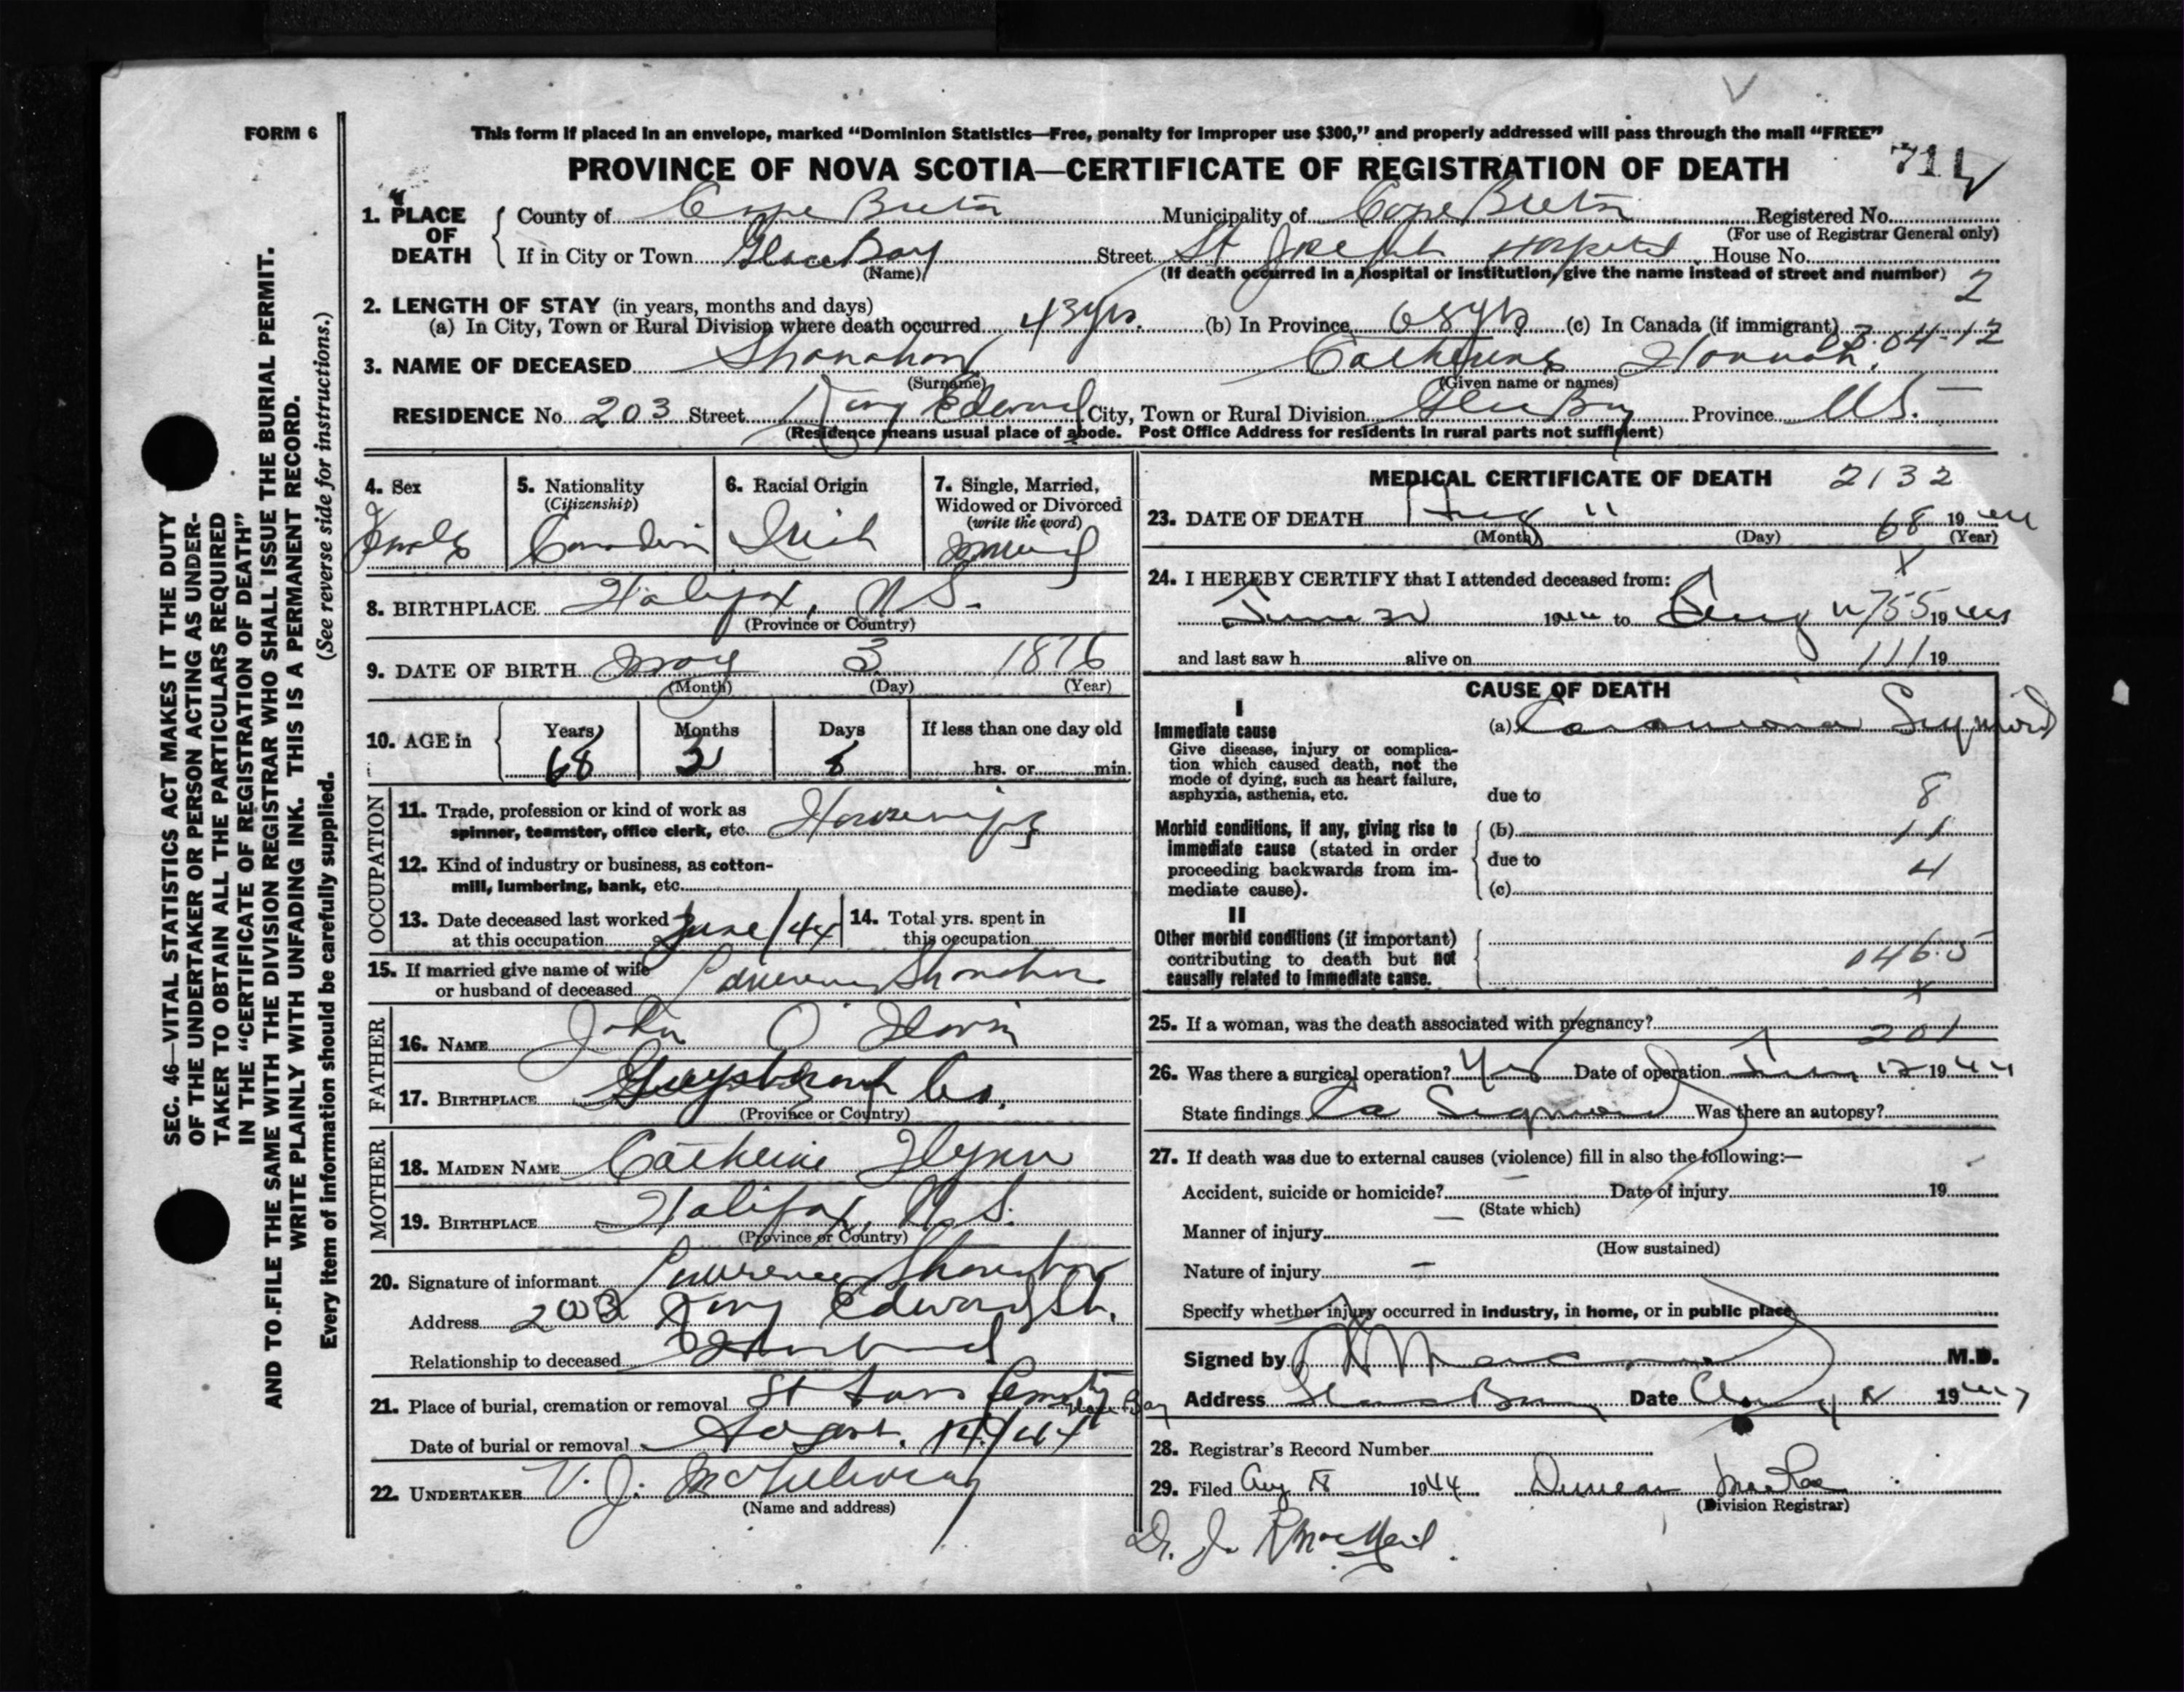 FORM 6
This form if placed in an envelope, marked “Dominion Statistics—Free, penalty for improper use $300,” and properly addressed will pass through the mail “FREE”
PROVINCE OF NOVA SCOTIA—CERTIFICATE OF REGISTRATION OF DEATH
1. PLACE OF DEATH County of Cape Breton Municipality of Cape Breton Registered No.
(For use of Registrar General only)
If in City or Town Glace Bay Street St Joseph Hospital House No.
(Name) (If death occurred in a hospital or institution, give the name instead of street and number)
2
2. LENGTH OF STAY (in years, months and days)
(a) In City, Town or Rural Division where death occurred 43 yrs. (b) In Province 68 yrs (c) In Canada (if immigrant)
3. NAME OF DECEASED Shanahan Catherine Hannah
(Surname) (Given name or names)
RESIDENCE No. 203 Street King Edward City, Town or Rural Division Glace Bay Province N.S.
(Residence means usual place of abode. Post Office Address for residents in rural parts not sufficient)
4. Sex Female
5. Nationality (Citizenship) Canadian
6. Racial Origin Irish
7. Single, Married, Widowed or Divorced (write the word) Married
8. BIRTHPLACE Halifax, N.S.
(Province or Country)
9. DATE OF BIRTH May 3 1876
(Month) (Day) (Year)
10. AGE in Years 68 Months 3 Days 8 If less than one day old hrs. or min.
OCCUPATION
11. Trade, profession or kind of work as
spinner, teamster, office clerk, etc. Housewife
12. Kind of industry or business, as cotton-
mill, lumbering, bank, etc.
13. Date deceased last worked at this occupation June/44
14. Total yrs. spent in this occupation
15. If married give name of wife
or husband of deceased Lawrence Shanahan
FATHER
16. NAME John O'
17. BIRTHPLACE Guysborough Co.
(Province or Country)
MOTHER
18. MAIDEN NAME Catherine Flynn
19. BIRTHPLACE Halifax, N.S.
(Province or Country)
20. Signature of informant Lawrence Shanahan
Address 203 King Edward St.
Relationship to deceased Husband
21. Place of burial, cremation or removal St Cemetery Glace Bay
Date of burial or removal August 14/44
22. UNDERTAKER V. J. McGillivray
(Name and address)
MEDICAL CERTIFICATE OF DEATH 2132
23. DATE OF DEATH Aug 11 68 1944
(Month) (Day) (Year)
24. I HEREBY CERTIFY that I attended deceased from:
June 1944 to Aug 11 755 1944
and last saw h alive on 111 19
CAUSE OF DEATH
I
Immediate cause
Give disease, injury or complica-
tion which caused death, not the
mode of dying, such as heart failure,
asphyxia, asthenia, etc.
(a) Carcinoma Sigmoid
due to 8
Morbid conditions, if any, giving rise to
immediate cause (stated in order
proceeding backwards from im-
mediate cause).
(b) 11
due to 4
(c)
II
Other morbid conditions (if important)
contributing to death but not
causally related to immediate cause.
046.5
25. If a woman, was the death associated with pregnancy? 201
26. Was there a surgical operation? Yes Date of operation 12 1944
State findings Ca Sigmoid Was there an autopsy?
27. If death was due to external causes (violence) fill in also the following:—
Accident, suicide or homicide? Date of injury 19
(State which)
Manner of injury
(How sustained)
Nature of injury
Specify whether injury occurred in industry, in home, or in public place
Signed by M.D.
Address Glace Bay Date Aug 1944
28. Registrar's Record Number
29. Filed Aug 18 1944 Duncan MacRae
(Division Registrar)
Dr. J. R MacNeil.
SEC. 46—VITAL STATISTICS ACT MAKES IT THE DUTY
OF THE UNDERTAKER OR PERSON ACTING AS UNDER-
TAKER TO OBTAIN ALL THE PARTICULARS REQUIRED
IN THE “CERTIFICATE OF REGISTRATION OF DEATH”
AND TO FILE THE SAME WITH THE DIVISION REGISTRAR WHO SHALL ISSUE THE BURIAL PERMIT.
WRITE PLAINLY WITH UNFADING INK. THIS IS A PERMANENT RECORD.
Every item of information should be carefully supplied. (See reverse side for instructions.)